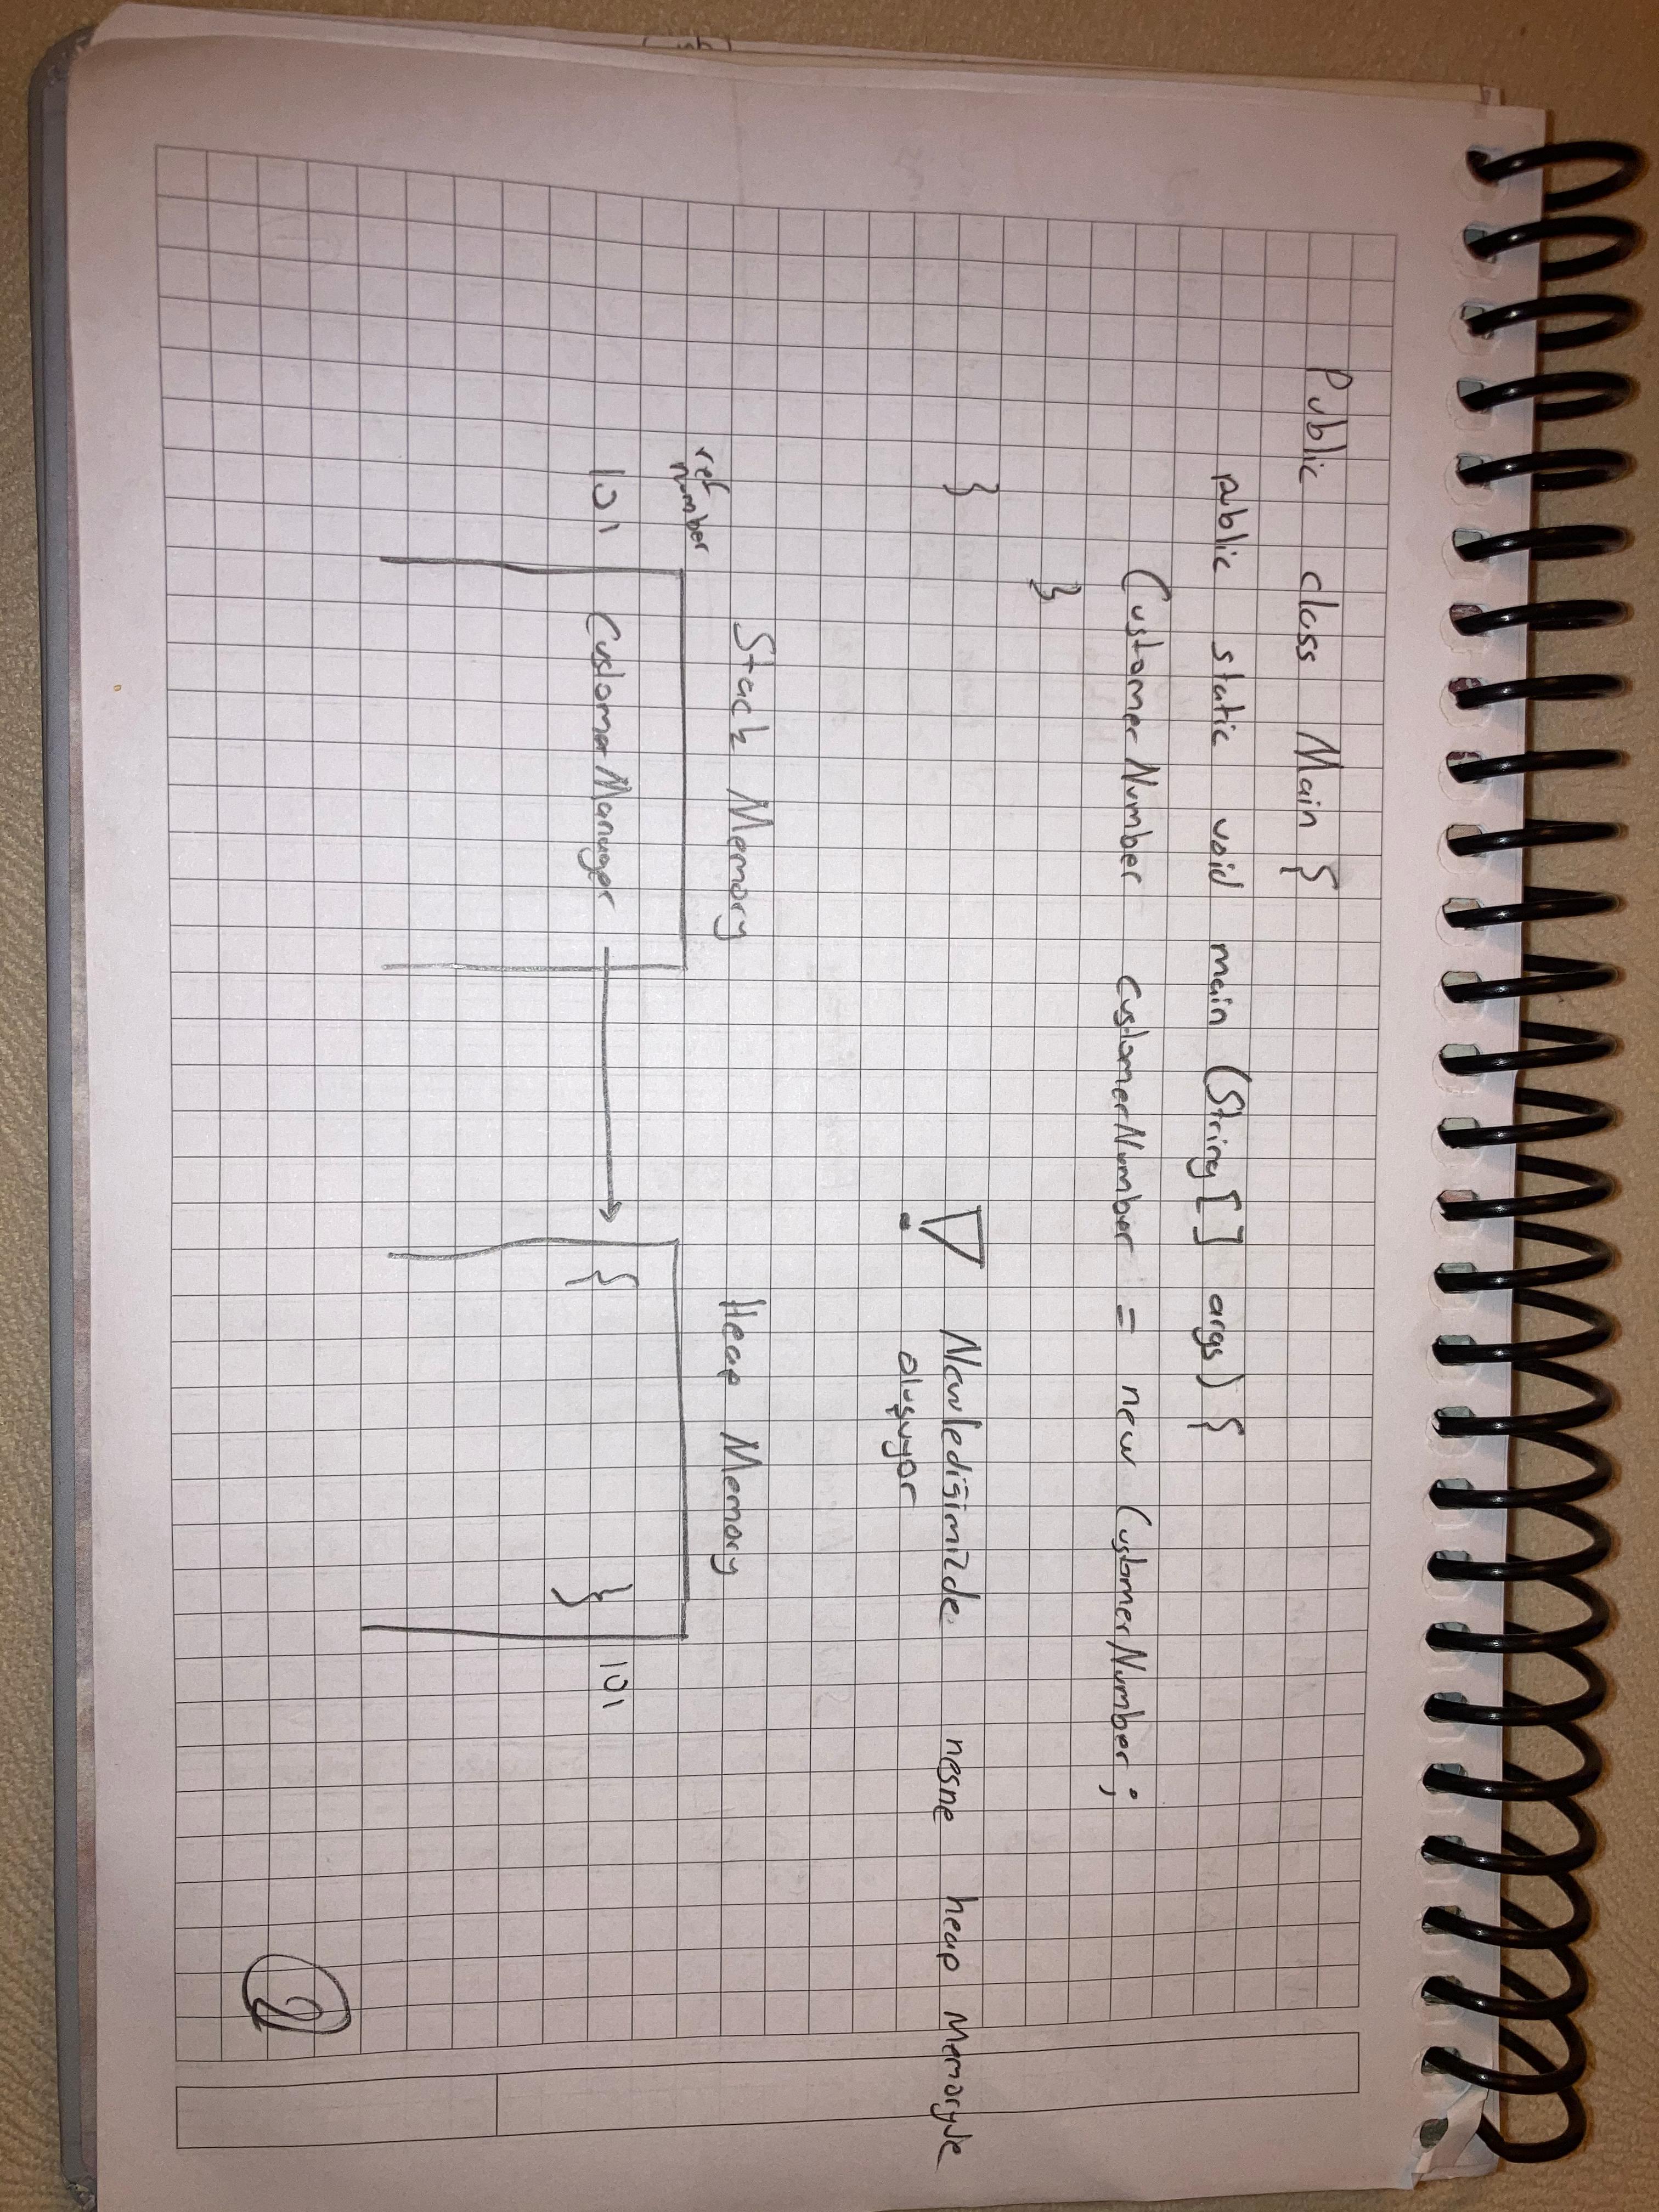 Public class Main {
public static void main (String [] args) {
CustomerNumber customerNumber = new CustomerNumber;
}
}
! Newlediğimizde nesne heap Memoryde
oluşuyor
Stack Memory
Heap Memory
ref
number
101 CustomerManager { } 101
2